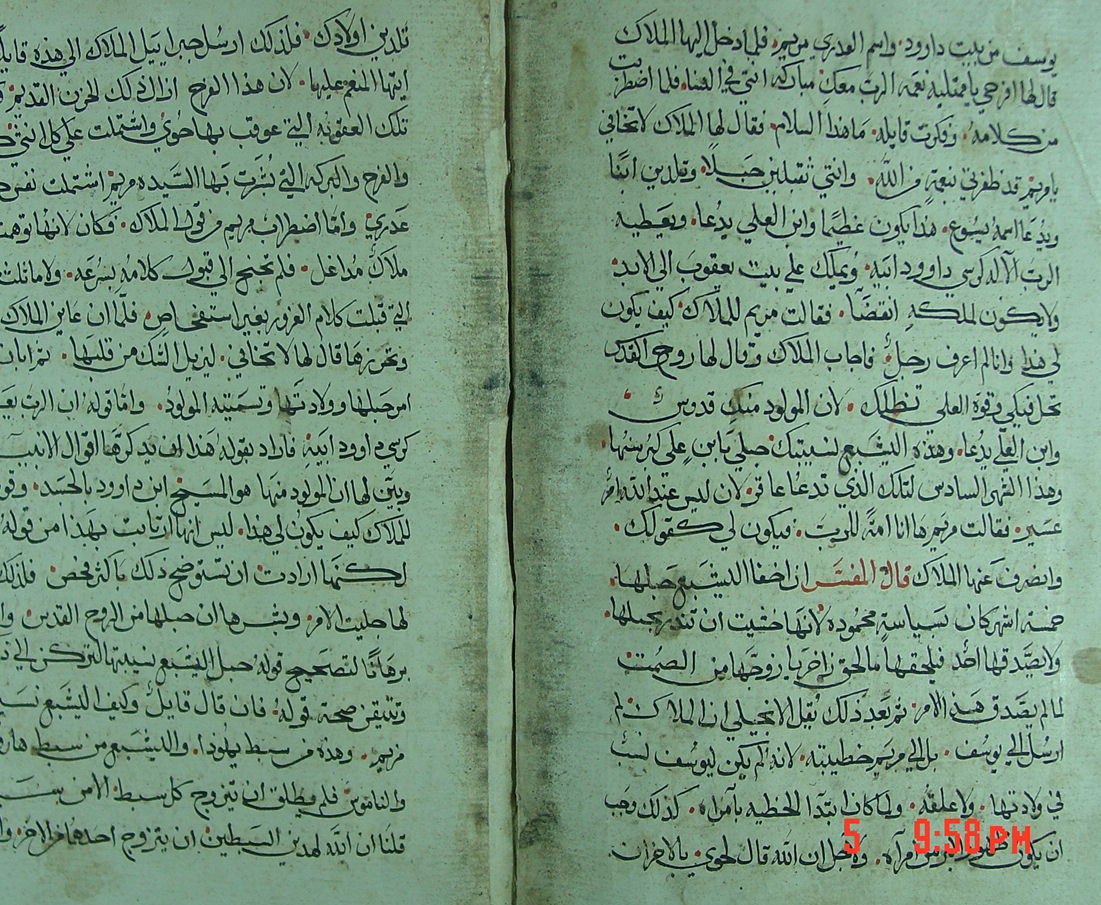 يوسف من بيت داوود. واسم العدري مريم. فلما دخل اليها الملاك
قال لها افرحي يا ممتليه نعمه الرب معك. مباركه انتي في النسا. فلما اضطربت
من كلامه. وفكرت قايله. ما هذا السلام. فقال لها الملاك لا تخافي
يا مريم قد ظفرتي بنعمة من الله. وانتي تقبلين حبلا. وتلدين ابنا
ويدعا اسمه يسوع. هذا يكون عظيما وابن العلي يدعا. ويعطيه
الرب الاله كرسي داوود ابيه. ويملك علي بيت يعقوب الي الابد.
ولا يكون لملكه انقضا. فقالت مريم للملاك كيف يكون
لي هذا وانا لم اعرف رجل. فاجاب الملاك وقال لها روح القدس
تحل فيكي وقوة العلي تظللك. لان المولود منك قدوس
وابن العلي يدعا. وهذه اليشبع نسيبتك حبلي بابن علي كبر سنها
وهذا الشهر السادس لتلك الذي تدعا عاقر. لان ليس عند الله امر
عسير. فقالت مريم ها انا امة للرب. فيكون لي كقولك.
وانصرف عنها الملاك قال المفسر ان اخفا اليشبع حبلها.
خمسة اشهر كان بسياسة محموده لانها خشيت ان تنذر بحبلها.
ولا يصدقها احد فيلحقها ما لحق زاخريا زوجها من الصمت
لما لم يصدق هذا الامر. ثم بعد ذلك يقل الانجيلي ان الملاك لم
ارسل الي يوسف. بل الي مريم خطيبته. لانه لم يكن ليوسف نسب
في ولادتها. ولا علقه. ولما كان ابتدا الخطيه بامراه. كذلك وجب
ان يكون امرآه. ان الله قال لحوي بالاحزان
5 9:58 PM
تلدين اولادك. فلذلك ارسل جبراييل الملاك الي هذه قايلا
ايتها المنعم عليها. لان هذا الفرح ازال ذلك الحزن القديم.
تلك العقوبه التي عوقب بها حوي واشتملت علي كل انثي
والفرح والبركه التي بشرت بها السيده مريم اشتملت
عدري. واما اضطراب مريم من قول الملاك. فكان لانها توهمت
ملاك فلم تجنح الي قبول كلامه بسرعه. ولا ماثلت
التي قبلت كلام الغرور بغير استفحاص. فلما ان عاين الملاك
قال لها لا تخافي. ليزيل الشك من قلبها. ثم ابان
امر حبلها وولادتها وتسميته المولود. واما قوله ان الرب
كرسي داوود ابيه. فاراد بقوله هذا ان يذكرها اقوال الانبيا
وبين لها ان المولود منها هو المسيح ابن داوود بالجسد.
للملاك كيف يكون لي هذا. ليس انها ارتابت بهذا من قوله
لكنها ارادت ان تستوضح ذلك بالتفحص. فلذلك
لها جليت الامر. وبشرها ان حبلها من الروح القدس.
برهانا لتصحيح قوله حبل اليشبع نسيبتها لتركن الي
وتتيقن صحة قوله. فان قال قايل وكيف اليشبع
مريم. وهذه من سبط يهودا. واليشبع من سبط
والناموس فلم يطلق ان يتزوج كل سبط. الا من
قلنا ان الله لهدين السبطين. ان يتزوج احدهما من الاخر.